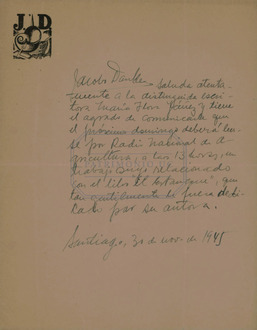 J D
Jacobo Danke saluda atenta-
mente a la distinguida escri-
tora María Flora Yáñez y tiene
el agrado de comunicarle que
el próximo domingo deberá leer-
se por Radio Nacional de A-
gricultura, a las 13 horas, un
trabajo suyo relacionado
con el libro "El Estanque", que
tan gentilmente le fuera dedi-
cado por su autora.
Santiago, 30 de nov. de 1945